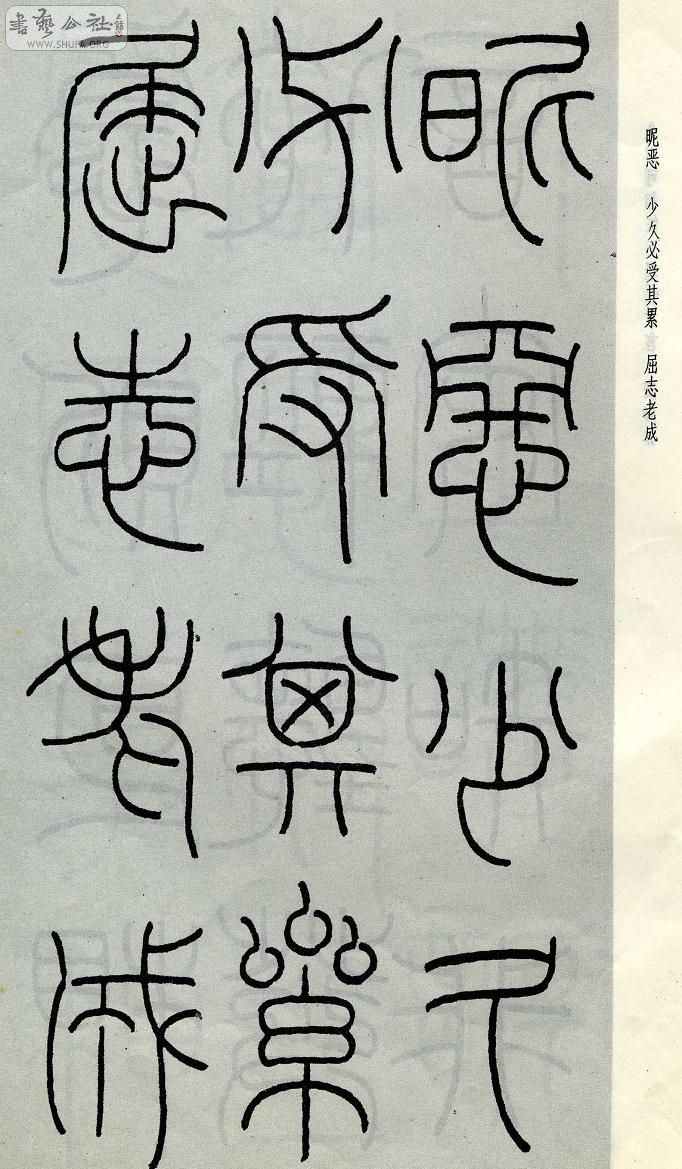 昵恶少久
必受其累
屈志老成
昵恶 少久必受其累 屈志老成
書藝公社
WWW.SHUFA.ORG